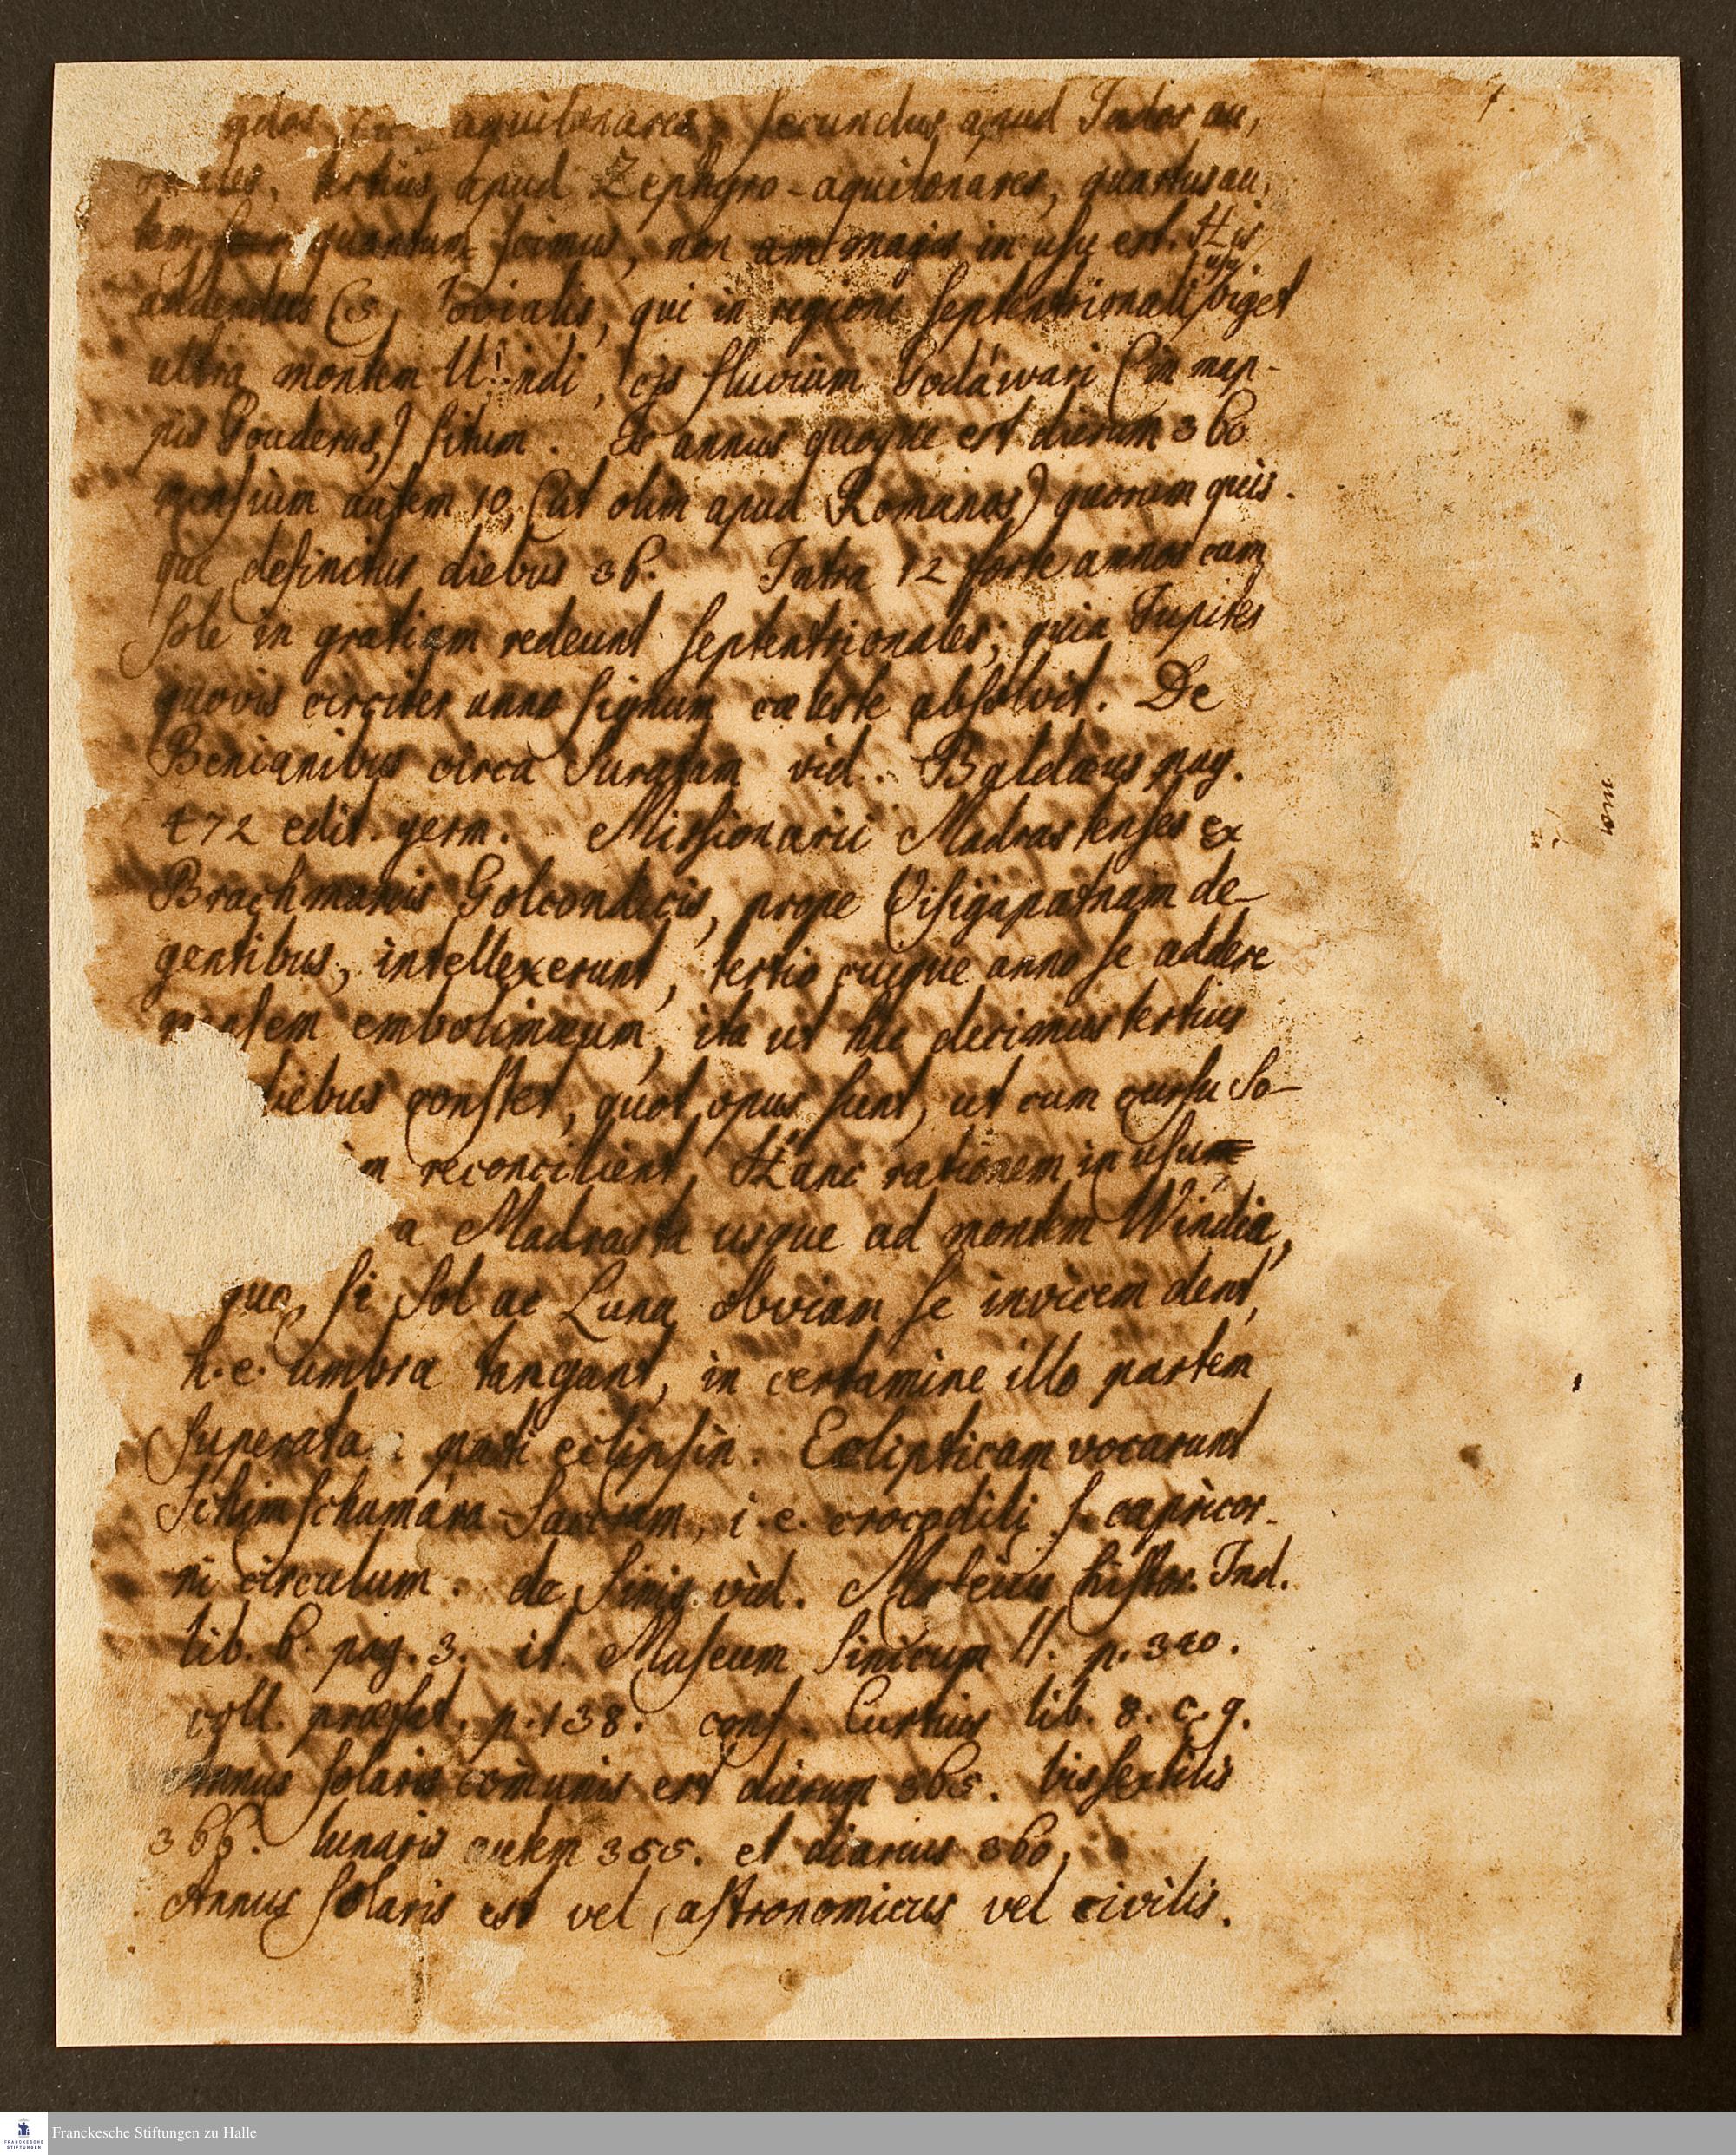 aquilonares, secundus apud Indos au,
tertius apud Zephyro-aquilonares, quartus au,
tem, quantum scimus, non magis in usu est. His
usu.
addendus (5, Iovialis, qui in regione septentrionali viget
ultra montem Windi, cis fluvium Godáwari (in map-
pis Gouderas,) situm. Is annus quoque est dierum 360
mensium autem 10, (ut olim apud Romanos) quorum quis-
que definitus diebus 36. Intra 12 forte annos cum
Sole in gratiam redeunt septentrionales; quia Jupiter
quovis circiter anno signum cœleste absolvit. De
Benianibus circa Suratam vid. Baldæus pag.
472 edit. germ. Missionarii Madrastenses ex
Brachmanis Golcondicis, prope Visigapatnam de-
gentibus, intellexerunt, tertio cuique anno se addere
mensem embolimæum, ita ut hic decimus tertius
diebus constet, quot opus sunt, ut cum cursu So-
reconcilient. Hanc rationem in usum
a Madrasta usque ad montem Windia,
que, si Sol ac Luna obviam se invicem dent,
h.e. umbra tangant, in certamine illo partem
Superata pati eclipsin. Eclipticam vocarunt
Schimschumára-Sackram, i.e. crocodili s. capricor-
ni circulum. de Sinis vid. histor. Ind.
lib. 6. pag. 3. it. Museum Sinicum II. p.
coll. præfat. p. 138. conf. Curtius lib. 8. c. 9.
Annus solaris com̄unis est dierum 365. bissextilis
366. lunaris autem 355. et diarius 360.
Annus solaris est vel astronomicus vel civilis.
Franckesche Stiftungen zu Halle
FRANCKESCHE
STIFTUNGEN